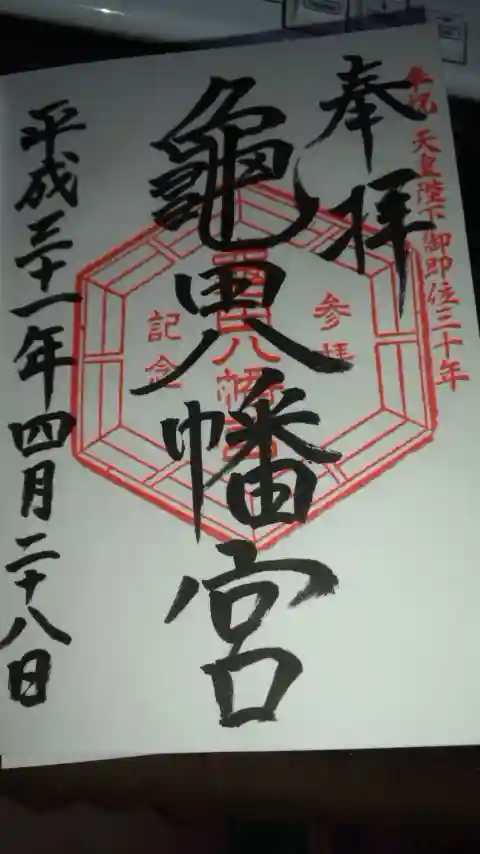 奉祝 天皇陛下御即位三十年
奉拝
龜田八幡宮
参拝
記念
平成三十一年四月二十八日